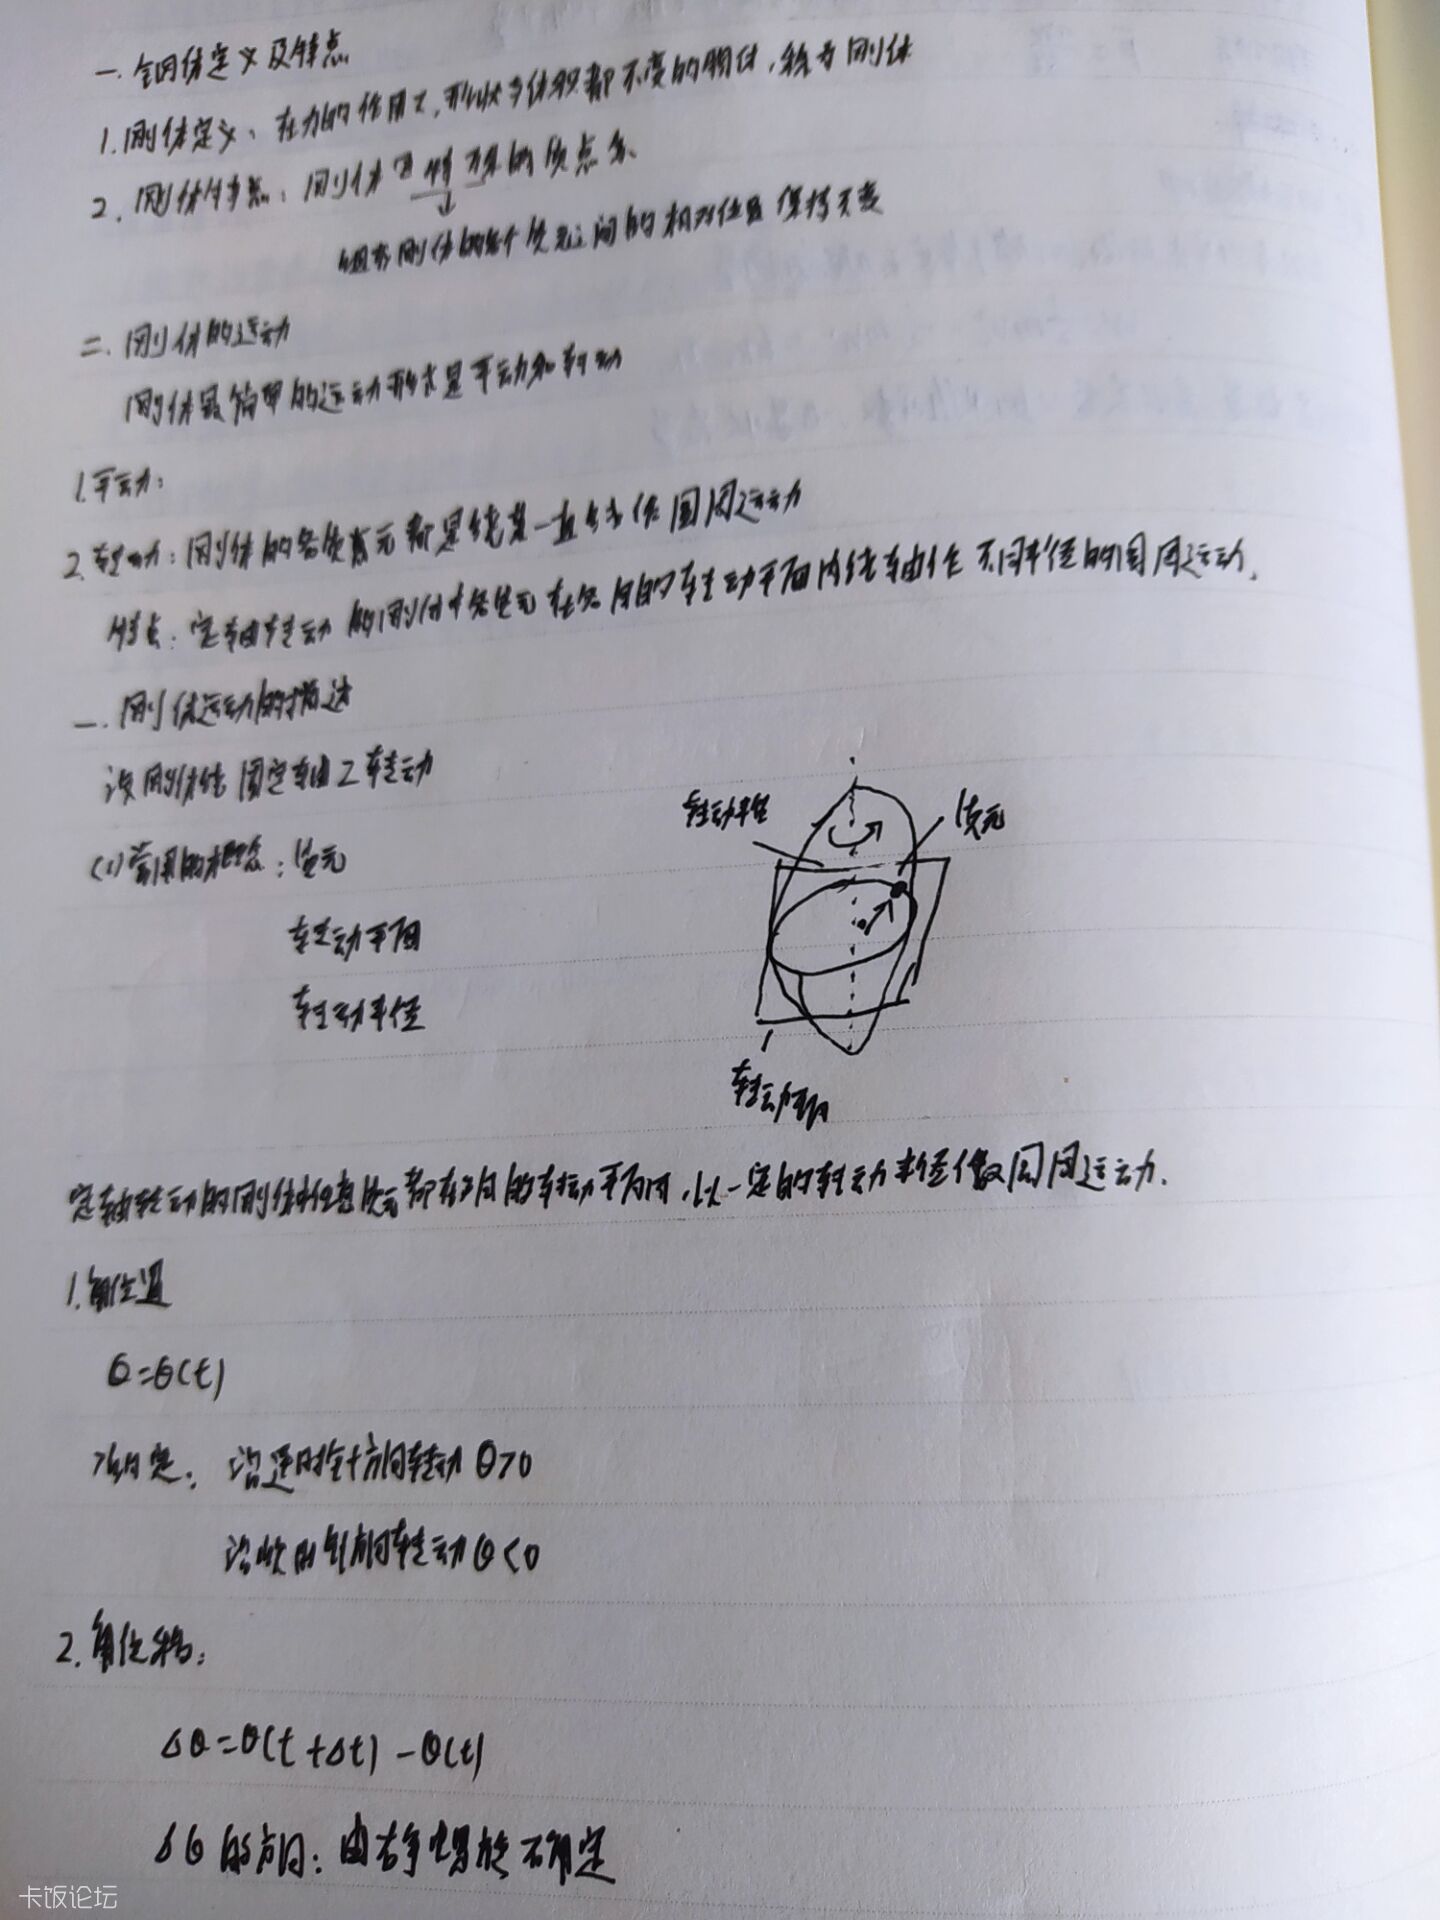 一. 刚体定义及特点
1. 刚体定义: 在力的作用下, 形状与体积都不变的物体, 称为刚体
2. 刚体特点: 刚体是特殊的质点系
组成刚体的各个质元之间的相对位置保持不变
二. 刚体的运动
刚体最简单的运动形式是平动和转动
1. 平动:
2. 转动: 刚体的各质元都是绕某一直线作圆周运动
特点: 定轴转动的刚体中各质元在各自的转动平面内绕轴作不同半径的圆周运动.
一. 刚体运动的描述
设刚体绕固定轴Z转动
(1)常用的概念: 质元
转动平面
转动半径
转动半径
质元
转动平面
定轴转动的刚体中任意质元都在自的转动平面内, 以一定的转动半径做圆周运动.
1. 角位置
θ=θ(t)
约定: 沿逆时针方向转动 θ>0
沿顺时针方向转动 θ<0
2. 角位移:
Δθ=θ(t+Δt)-θ(t)
Δθ的方向: 由右手螺旋确定
卡饭论坛